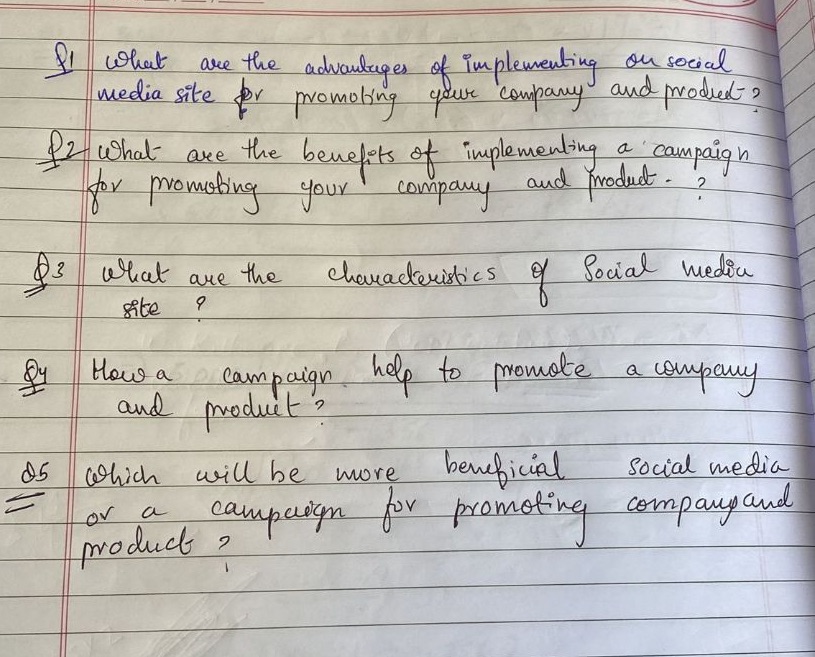 Q1 What are the advantages of implementing on social
media site for promoting your company and product ?
Q2 What are the benefits of implementing a campaign
for promoting your company and product. ?
Q3 What are the characteristics of Social media
site ?
Q4 How a campaign help to promote a company
and product ?
Q5 Which will be more beneficial social media
or a campaign for promoting company and
product ?